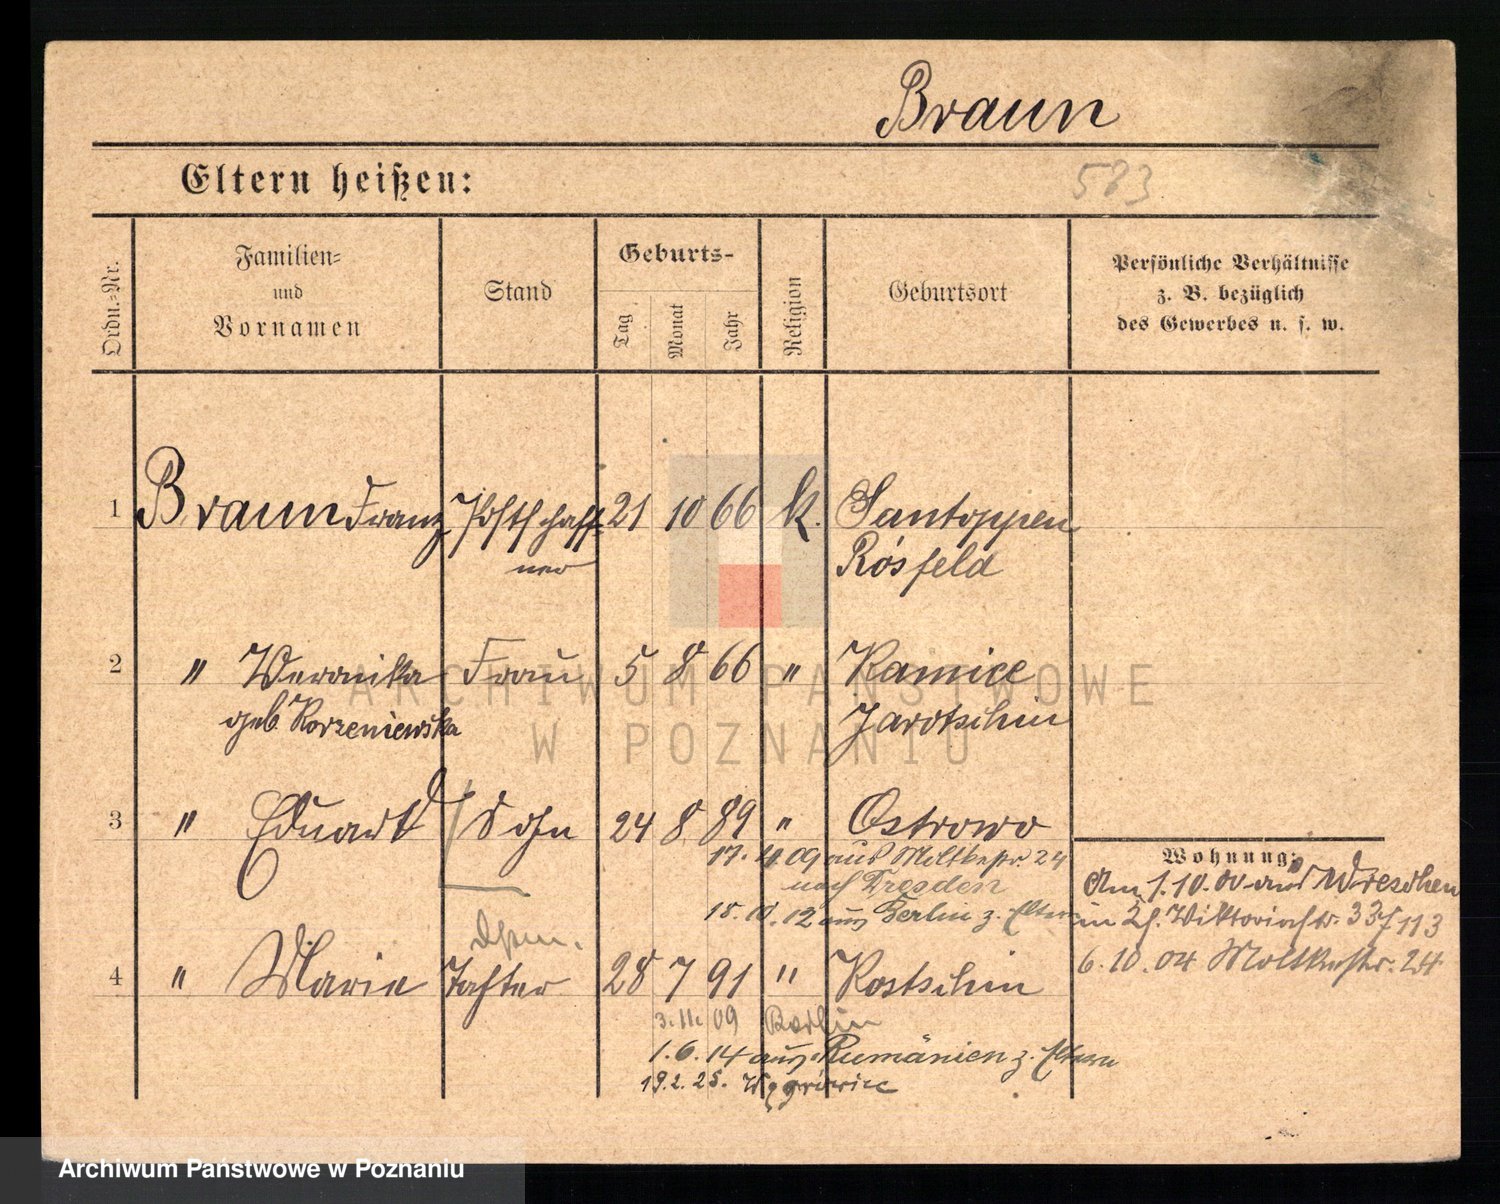 Braun
Eltern heißen:
583
Ordn.=Nr.
Familien=
und
Vornamen
Stand
Geburts-
Tag
Monat
Jahr
Religion
Geburtsort
Persönliche Verhältnisse
z. B. bezüglich
des Gewerbes u. s. w.
1 Braun Franz Postschaff 21 10 66 k. Santoppen
ner Rösfeld
2 " Weronika Frau 5 8 66 " Kamice
geb. Korzeniewska Jarotschin
3 " Eduard Sohn 24 8 89 " Ostrowo
17. 4. 09 aus Moltkestr. 24
nach Dresden
18. 10. 12 aus Berlin z. Eltern
Wohnung:
Am 1.10.00 aus Wreschen
in Viktoriastr. 33
6.10.04 Moltkestr. 24
4 " Marie Tochter 28 7 91 " Kostschin
3. 11. 09 Berlin
1.6.14 aus Rumänien z. Eltern
19.2.25. Wągrowiec
ARCHIWUM PAŃSTWOWE
W POZNANIU
Archiwum Państwowe w Poznaniu